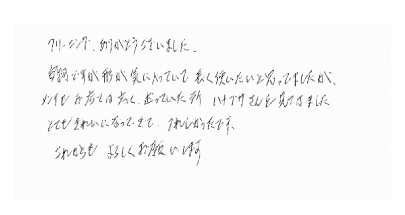 クリーニング、ありがとうございました。
ですが形が気に入っていて長く使いたいと思ってましたが、
メンテも お店では高く、迷っていた所 ハナフサさんを見つけました
とてもきれいになってきて、うれしかったです。
これからも よろしくお願いします